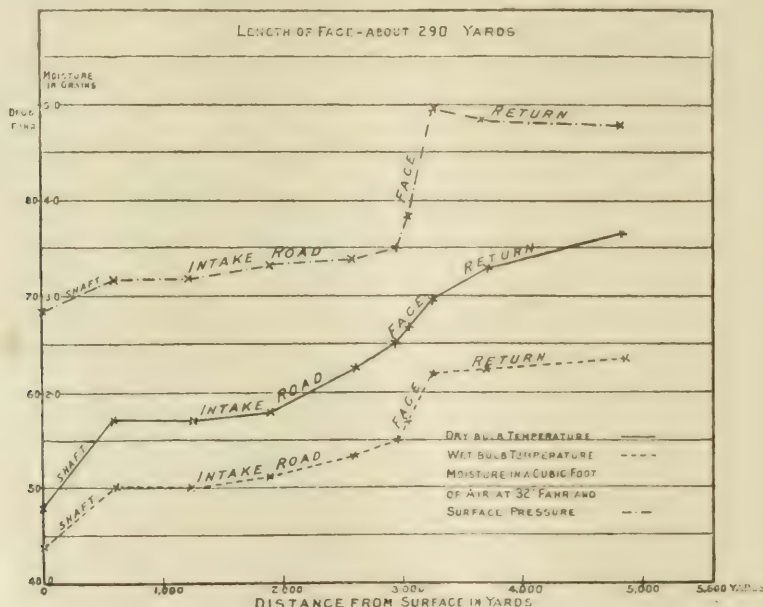 LENGTH OF FACE - ABOUT 290 YARDS
MOISTURE
IN GRAINS
DEGS
FAHR
5·0
RETURN
FACE
80 4·0
INTAKE ROAD
SHAFT
RETURN
70 3·0
FACE
INTAKE ROAD
60 2·0
RETURN
FACE
SHAFT
INTAKE ROAD
50
SHAFT
DRY BULB TEMPERATURE
WET BULB TEMPERATURE
MOISTURE IN A CUBIC FOOT
OF AIR AT 32° FAHR AND
SURFACE PRESSURE
40
0 1,000 2,000 3,000 4,000 5,000 5,600 YARDS
DISTANCE FROM SURFACE IN YARDS